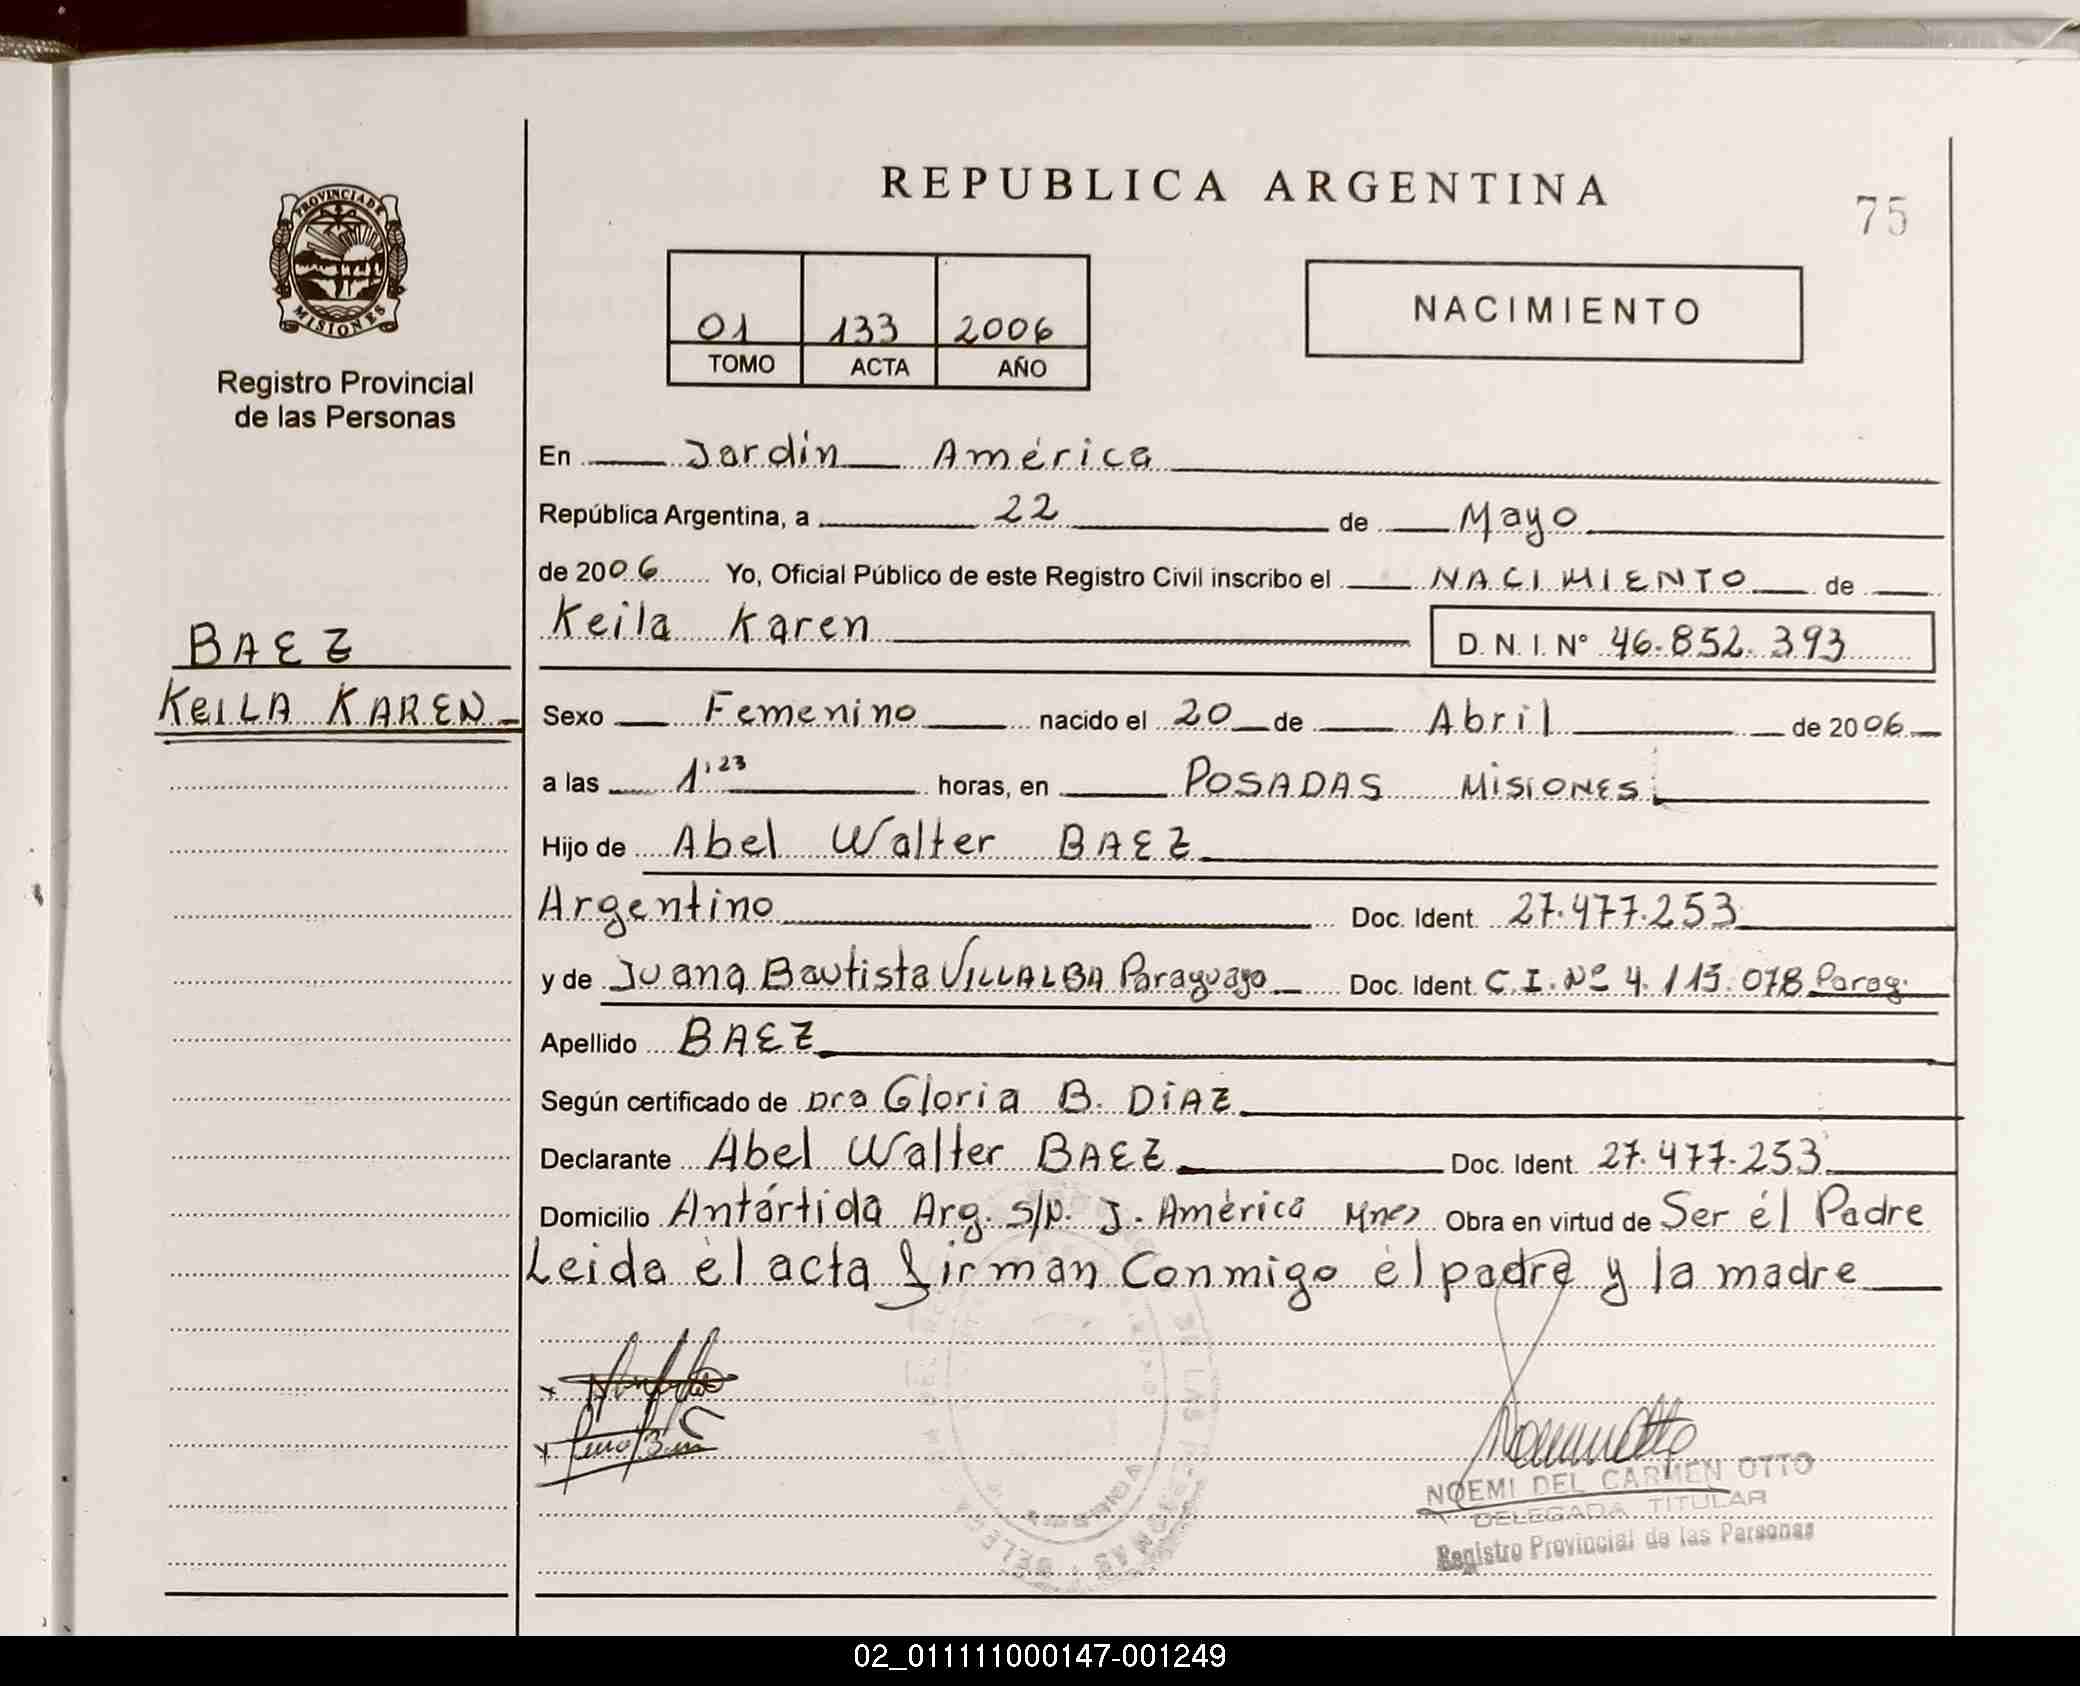 PROVINCIA DE
MISIONES
Registro Provincial
de las Personas
BAEZ
KEILA KAREN
REPUBLICA ARGENTINA
75
01 133 2006
TOMO ACTA AÑO
NACIMIENTO
En Jardín América
República Argentina, a 22 de Mayo
de 2006 Yo, Oficial Público de este Registro Civil inscribo el NACIMIENTO de
Keila Karen D. N. I. Nº 46.852.393
Sexo Femenino nacido el 20 de Abril de 2006
a las 1,23 horas, en POSADAS MISIONES
Hijo de Abel Walter BAEZ
Argentino Doc. Ident. 27.477.253
y de Juana Bautista VILLALBA Paraguayo Doc. Ident. C.I. Nº 4.115.078 Parag.
Apellido BAEZ
Según certificado de Dra Gloria B. DIAZ
Declarante Abel Walter BAEZ Doc. Ident. 27.477.253
Domicilio Antártida Arg. s/n. J. América Mnes Obra en virtud de Ser él Padre
Leida el acta firman Conmigo el padre y la madre
NOEMI DEL CARMEN OTTO
DELEGADA TITULAR
Registro Provincial de las Personas
02_011111000147-001249